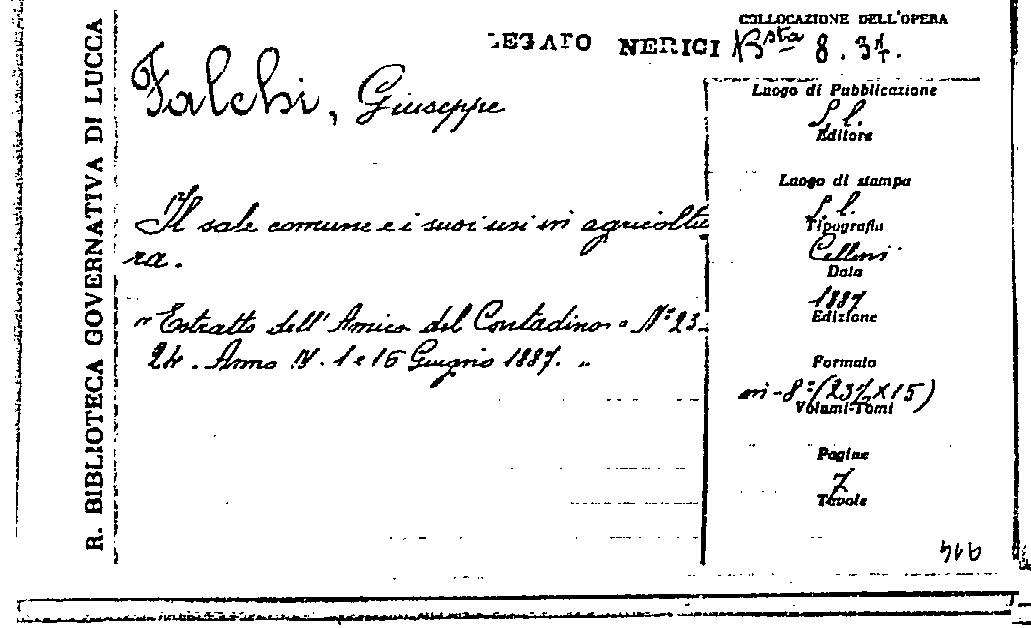 R. BIBLIOTECA GOVERNATIVA DI LUCCA
COLLOCAZIONE DELL'OPERA
LEGATO NERICI Bsta 8. 37.
Falchi, Giuseppe
Il sale comune e i suoi usi in agricoltu
ra.
"Estratto dell'Amico del Contadino" N° 23-
24. Anno IV. 1 e 16 Giugno 1887. "
Luogo di Pubblicazione
S. l.
Editore
Luogo di stampa
S. l.
Tipografia
Cellini
Data
1887
Edizione
Formato
in-8° (23½ X 15)
Volumi-Tomi
Pagine
7
Tavole